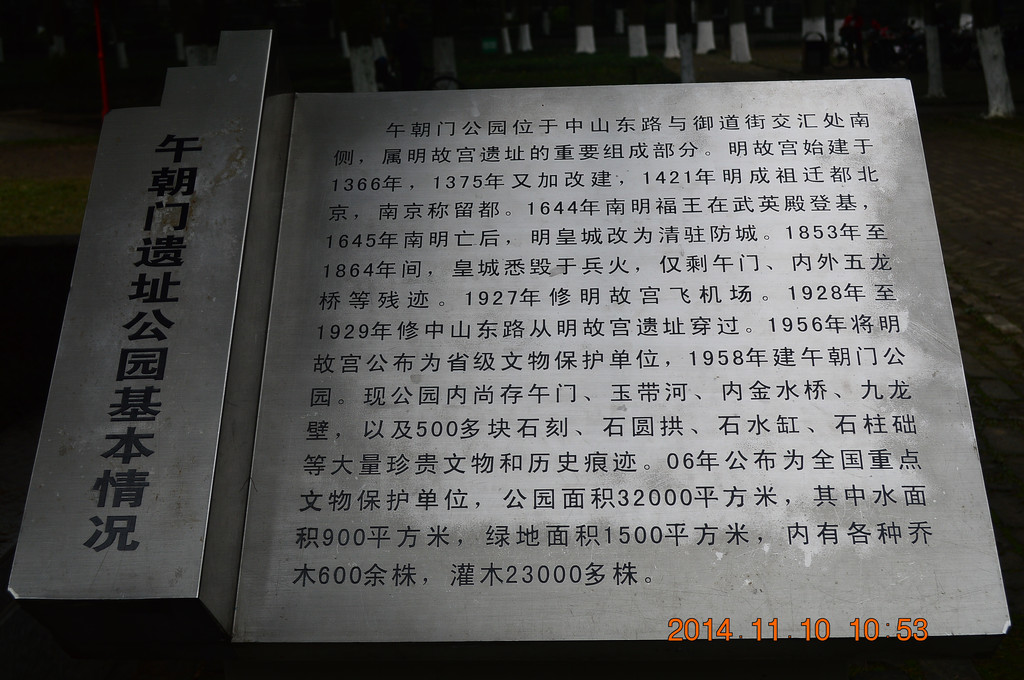 午朝门遗址公园基本情况
午朝门公园位于中山东路与御道街交汇处南
侧，属明故宫遗址的重要组成部分。明故宫始建于
1366年，1375年又加改建，1421年明成祖迁都北
京，南京称留都。1644年南明福王在武英殿登基，
1645年南明亡后，明皇城改为清驻防城。1853年至
1864年间，皇城悉毁于兵火，仅剩午门、内外五龙
桥等残迹。1927年修明故宫飞机场。1928年至
1929年修中山东路从明故宫遗址穿过。1956年将明
故宫公布为省级文物保护单位，1958年建午朝门公
园。现公园内尚存午门、玉带河、内金水桥、九龙
壁，以及500多块石刻、石圆拱、石水缸、石柱础
等大量珍贵文物和历史痕迹。06年公布为全国重点
文物保护单位，公园面积32000平方米，其中水面
积900平方米，绿地面积1500平方米，内有各种乔
木600余株，灌木23000多株。
2014.11.10 10:53